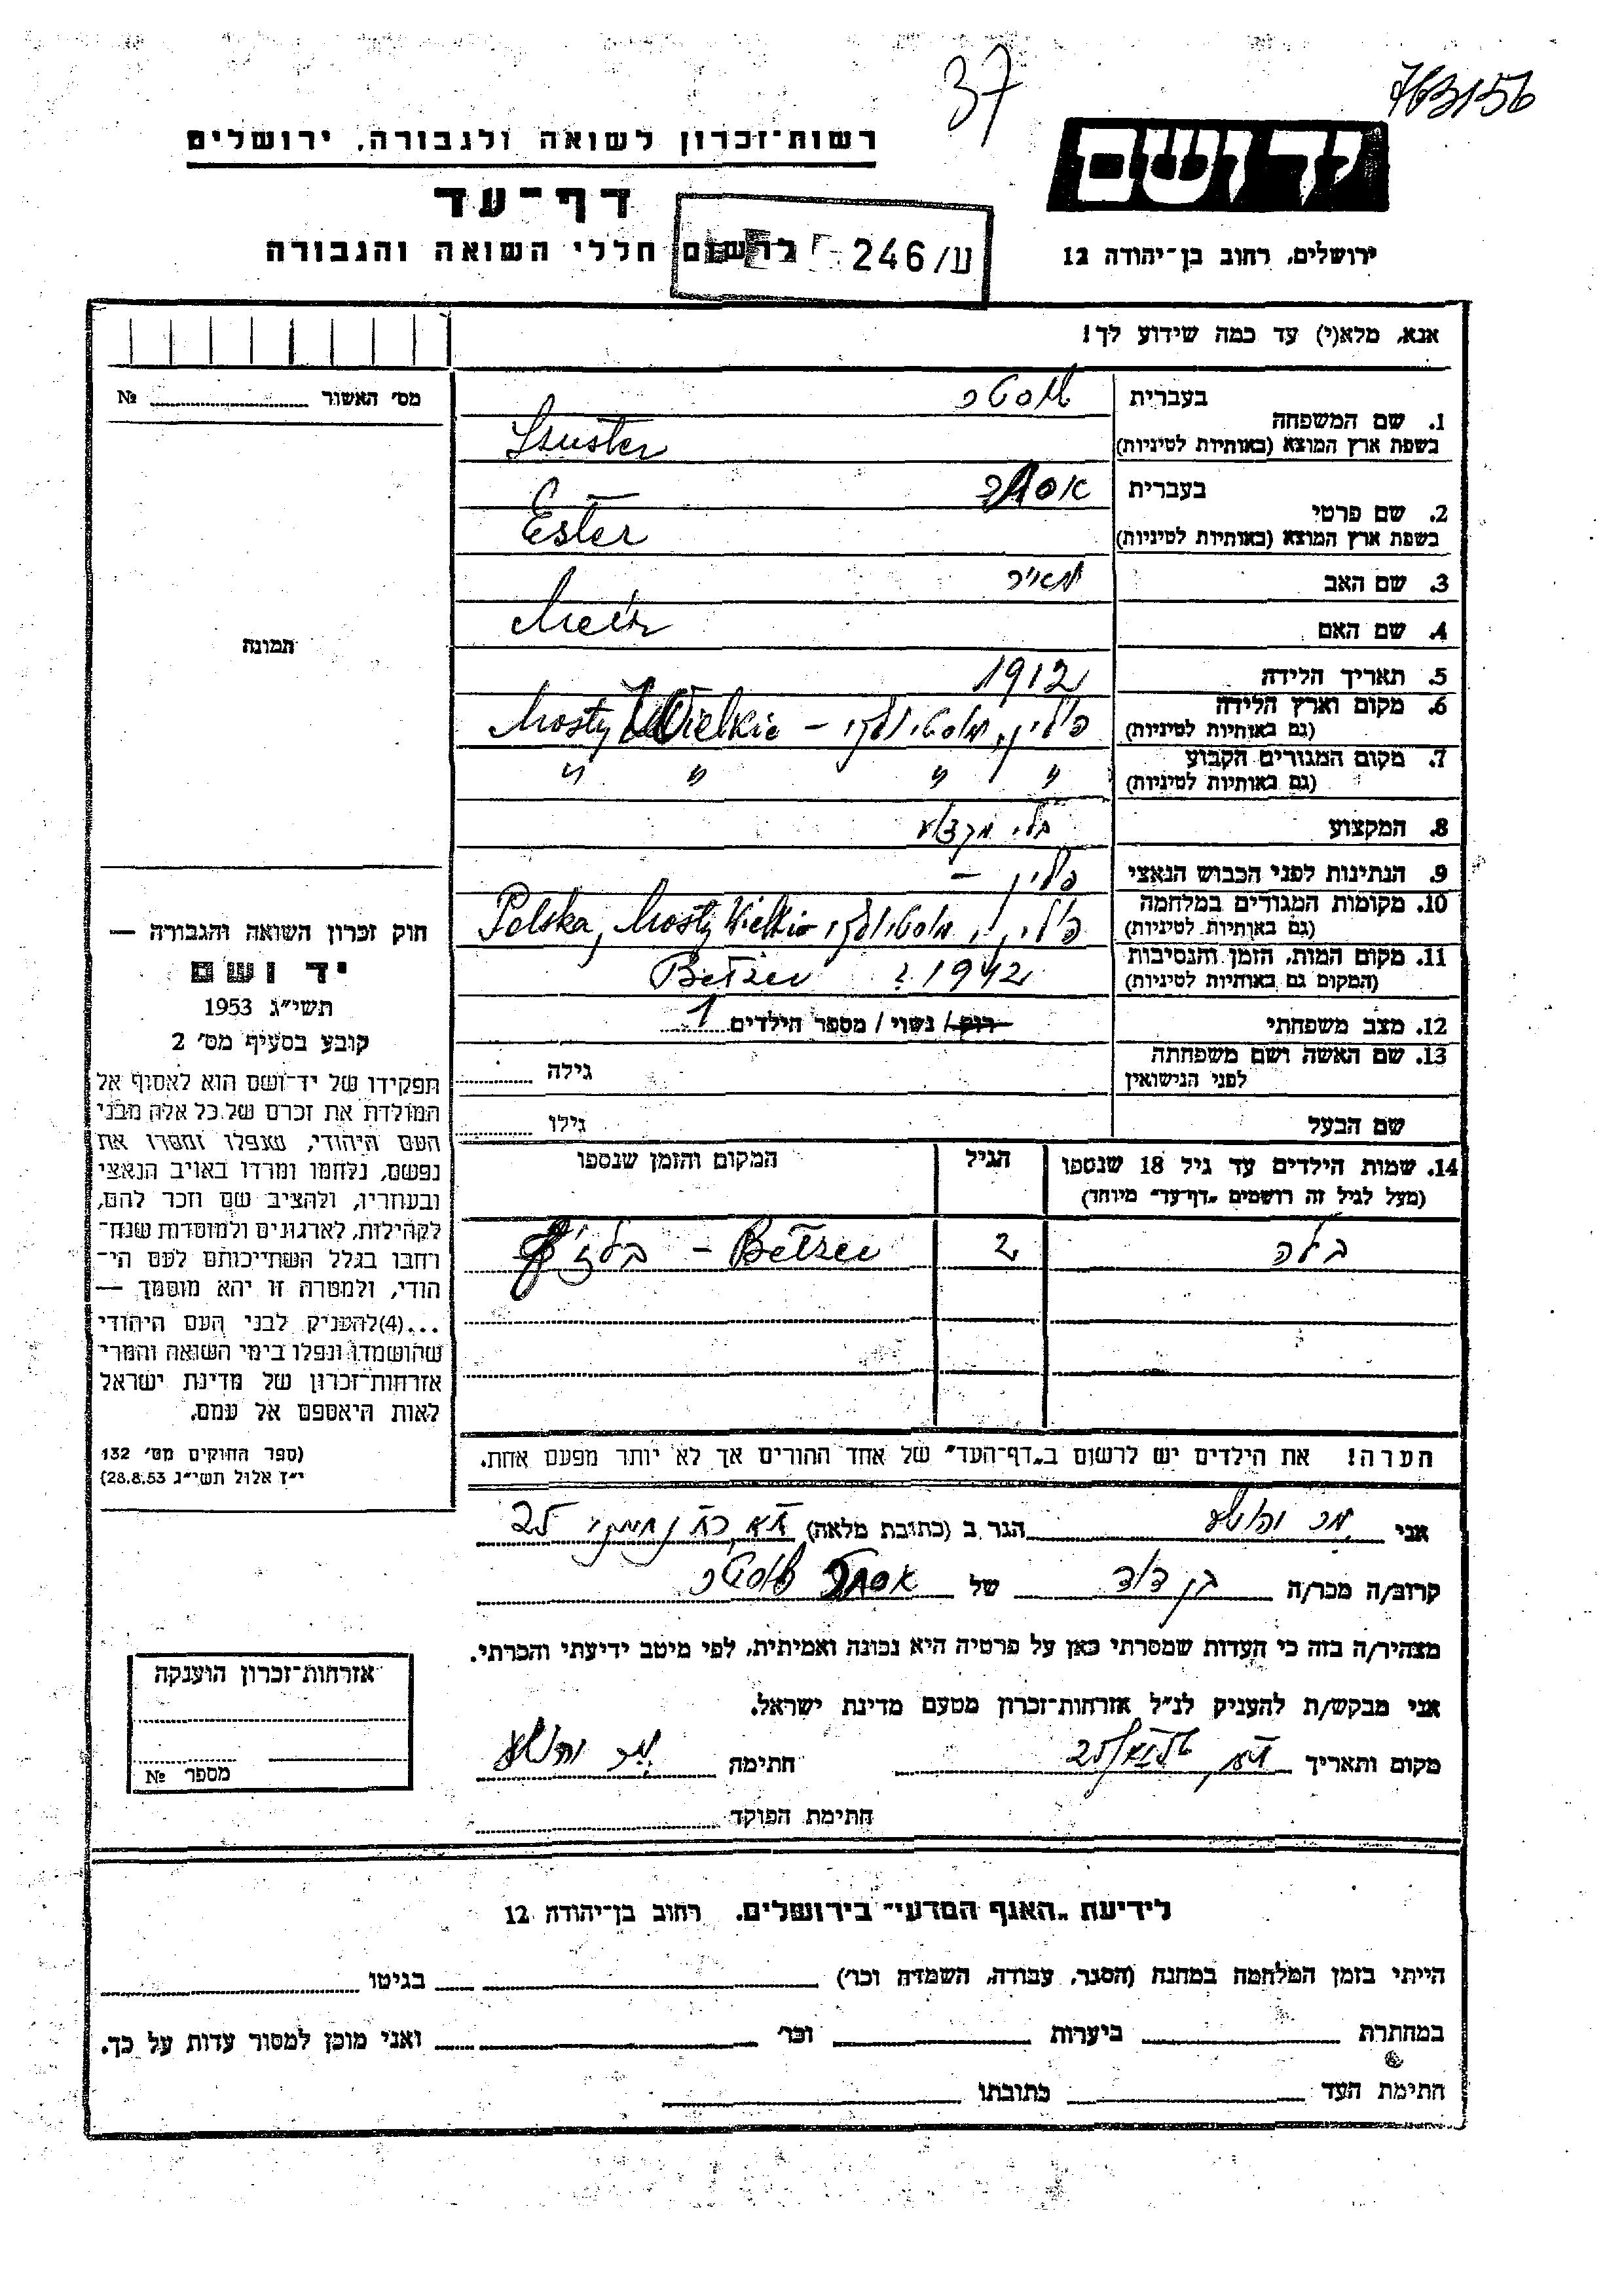 37
763156
רשות־זכרון לשואה ולגבורה, ירושלים
יד ושם
דף־עד
לרשום חללי השואה והגבורה
246/ע
ירושלים, רחוב בן־יהודה 12
אנא, מלא(י) עד כמה שידוע לך!
מס׳ האשור № 
1. שם המשפחה
בעברית שוסטר
בשפת ארץ המוצא (באותיות לטיניות) Szuster
2. שם פרטי
בעברית אסתר
בשפת ארץ המוצא (באותיות לטיניות) Ester
3. שם האב מאיר
Meir
4. שם האם
5. תאריך הלידה 1912
6. מקום וארץ הלידה
(גם באותיות לטיניות) פולין, Mosty Wielkie –
7. מקום המגורים הקבוע
(גם באותיות לטיניות) " " " "
8. המקצוע בלי מקצוע
9. הנתינות לפני הכבוש הנאצי פולין –
10. מקומות המגורים במלחמה
(גם באותיות לטיניות) פולין, Polska, Mosty Wielkie
11. מקום המות, הזמן והנסיבות
(המקום גם באותיות לטיניות) 1942 ? Bełżec
12. מצב משפחתי רווק / נשוי / מספר הילדים 1
13. שם האשה ושם משפחתה
לפני הנישואין גילה
שם הבעל גילו
14. שמות הילדים עד גיל 18 שנספו הגיל המקום והזמן שנספו
(מעל לגיל זה רושמים „דף־עד״ מיוחד)
בלה 2 Bełżec –
הערה! את הילדים יש לרשום ב„דף־העד״ של אחד ההורים אך לא יותר מפעם אחת.
תמונה
חוק זכרון השואה והגבורה —
יד ושם
תשי״ג 1953
קובע בסעיף מס׳ 2
תפקידו של יד־ושם הוא לאסוף אל
המולדת את זכרם של כל אלה מבני
העם היהודי, שנפלו ומסרו את
נפשם, נלחמו ומרדו באויב הנאצי
ובעוזריו, ולהציב שם וזכר להם,
לקהילות, לארגונים ולמוסדות שנח־
רחבו בגלל השתייכותם לעם הי־
הודי, ולמטרה זו יהא מוסמך —
...(4)להעניק לבני העם היהודי
שהושמדו ונפלו בימי השואה והמרי
אזרחות־זכרון של מדינת ישראל
לאות היאספם אל עמם.
(ספר החוקים מס׳ 132
י״ז אלול תשי״ג 28.8.53)
אני הגר ב (כתובת מלאה) 25
קרוב/ה מכר/ה בן דוד של אסתר שוסטר
מצהיר/ה בזה כי העדות שמסרתי כאן על פרטיה היא נכונה ואמיתית, לפי מיטב ידיעתי והכרתי.
אני מבקש/ת להעניק לנ״ל אזרחות־זכרון מטעם מדינת ישראל.
מקום ותאריך חתימה
חתימת הפוקד
אזרחות־זכרון הוענקה
מספר №
לידיעת „האגף המדעי״ בירושלים, רחוב בן־יהודה 12
הייתי בזמן המלחמה במחנה (הסגר, עבודה, השמדה וכו׳) בגיטו
במחתרת ביערות וכו׳ ואני מוכן למסור עדות על כך.
חתימת העד כתובתו